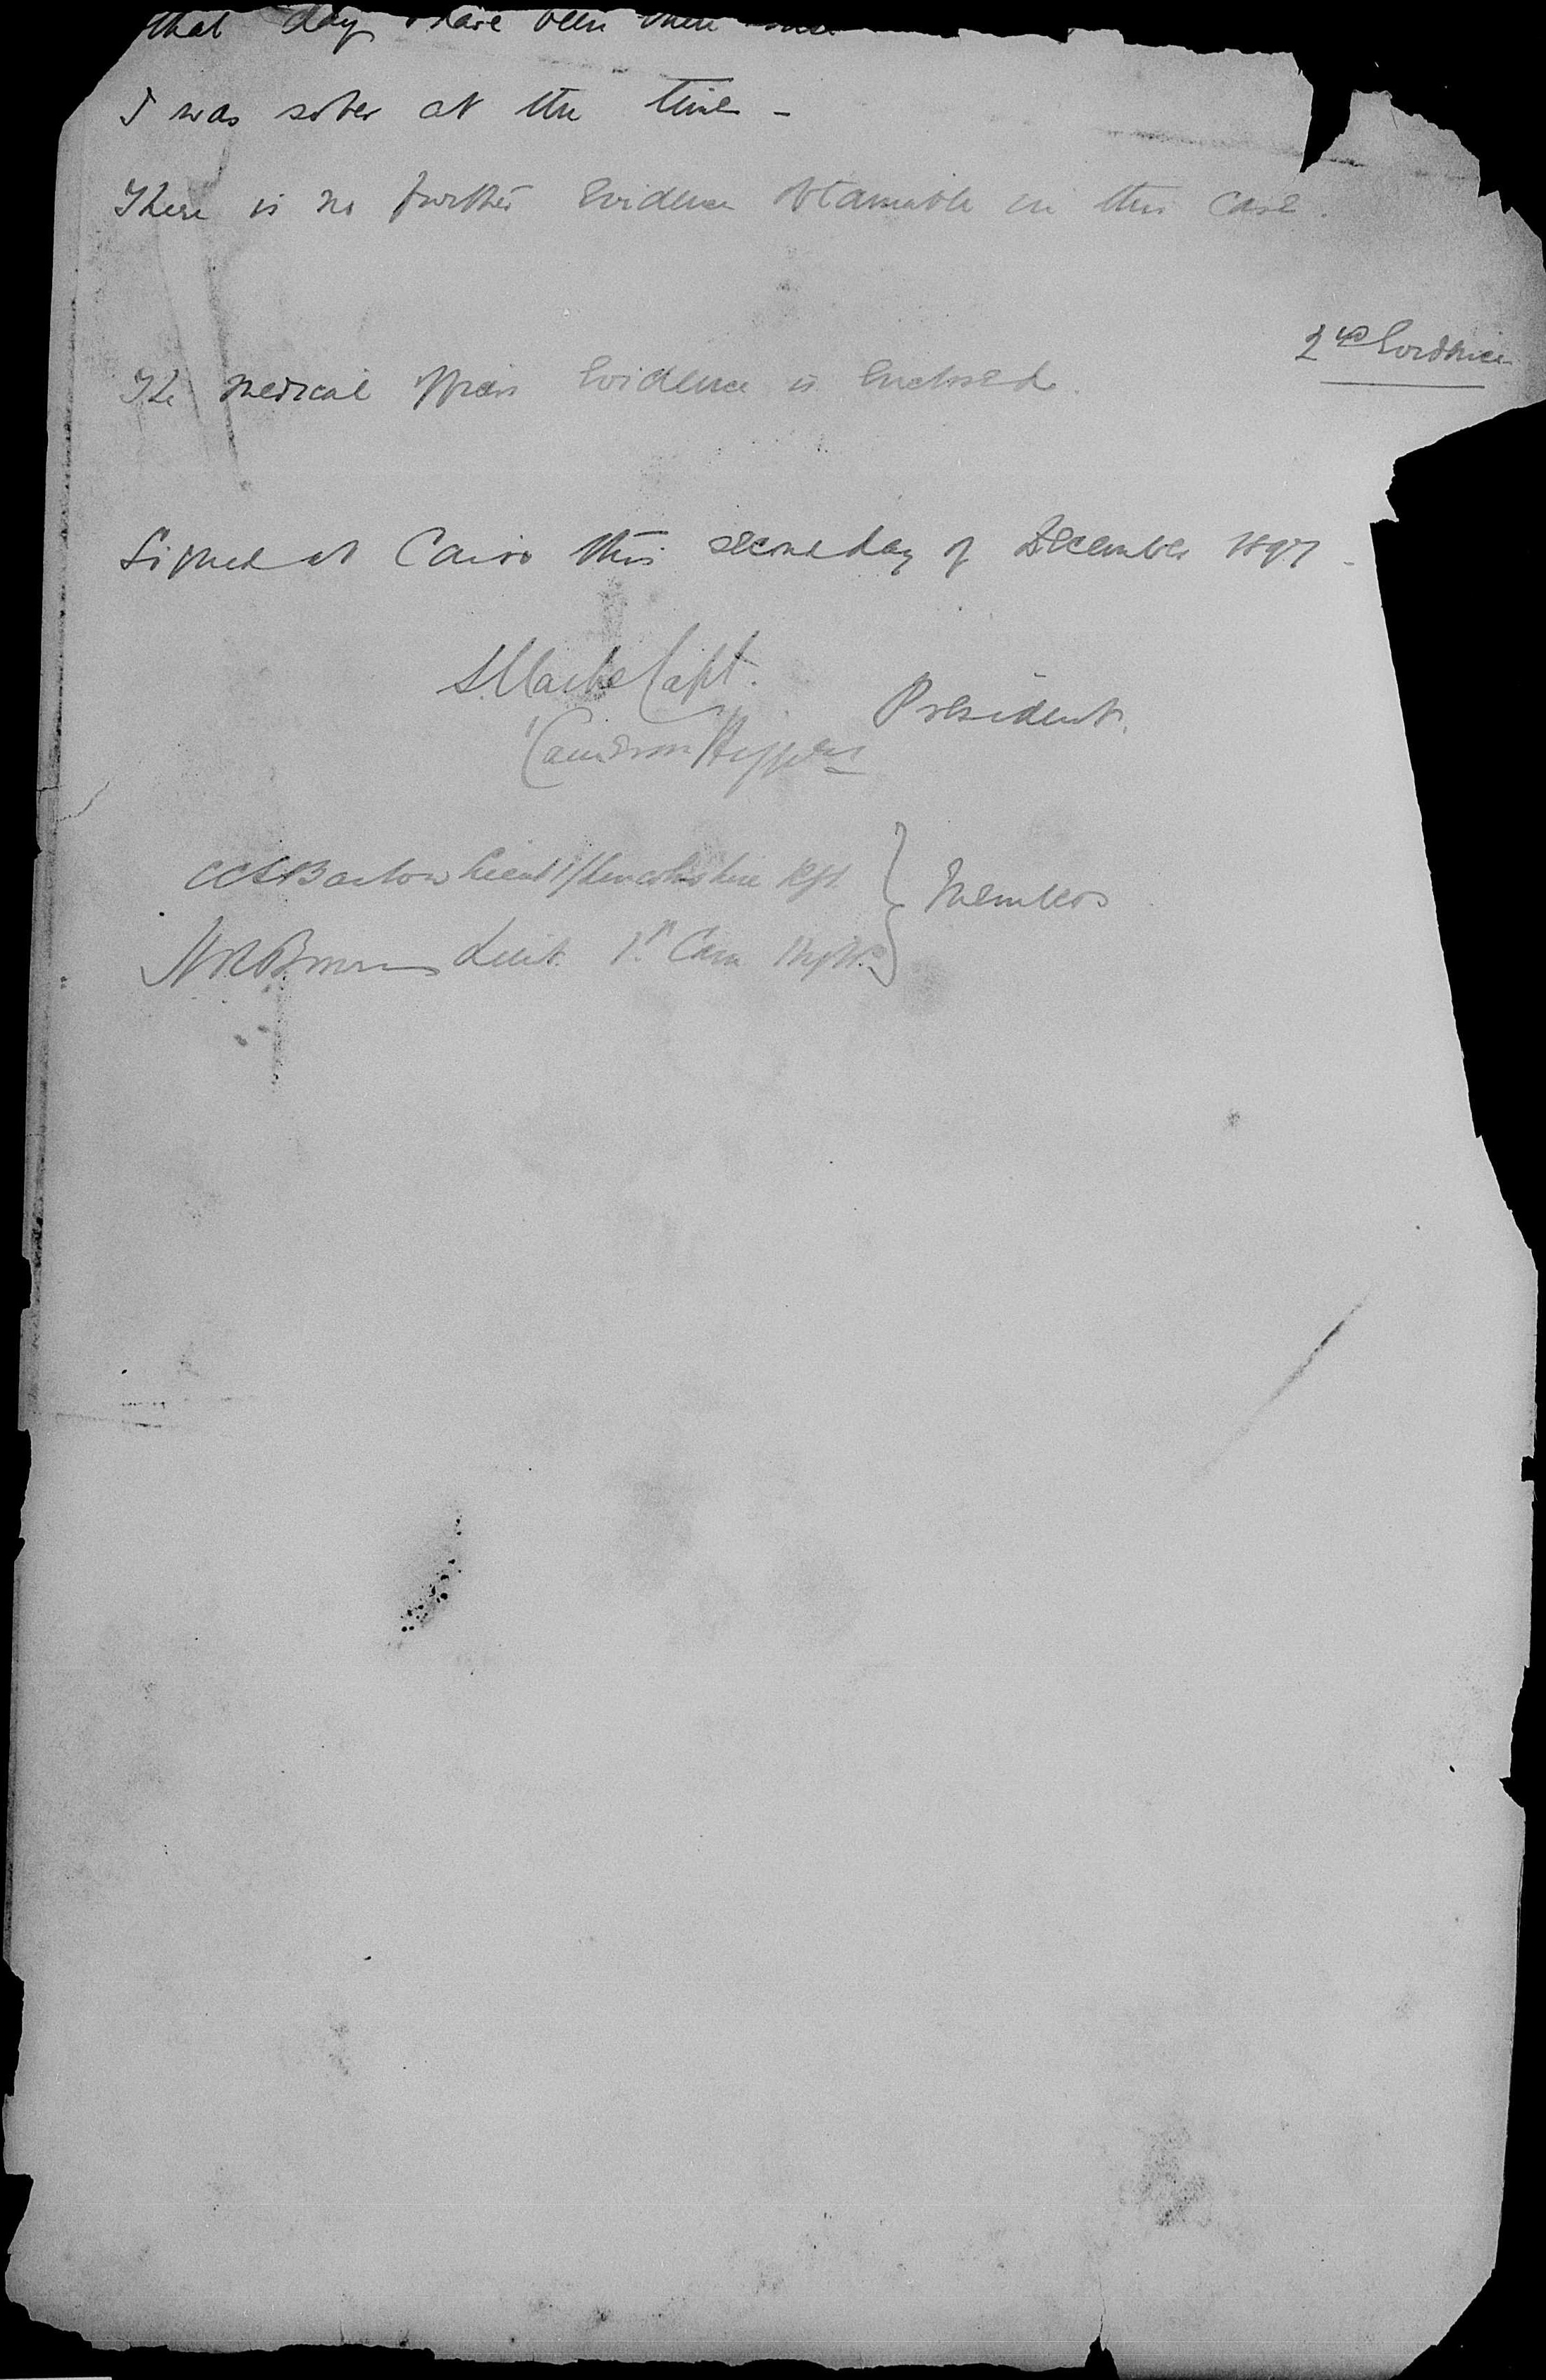 that day I have been there
I was sober at the time -
There is no further Evidence obtainable in this Case.
2nd Evidence
The medical officers Evidence is Enclosed.
Signed at Cairo this second day of December 1897 -
Capt.
President.
Cameron Highrs
Lieut 1/Lincolnshire Regt.
Members
Lieut. 1st Cam Highrs